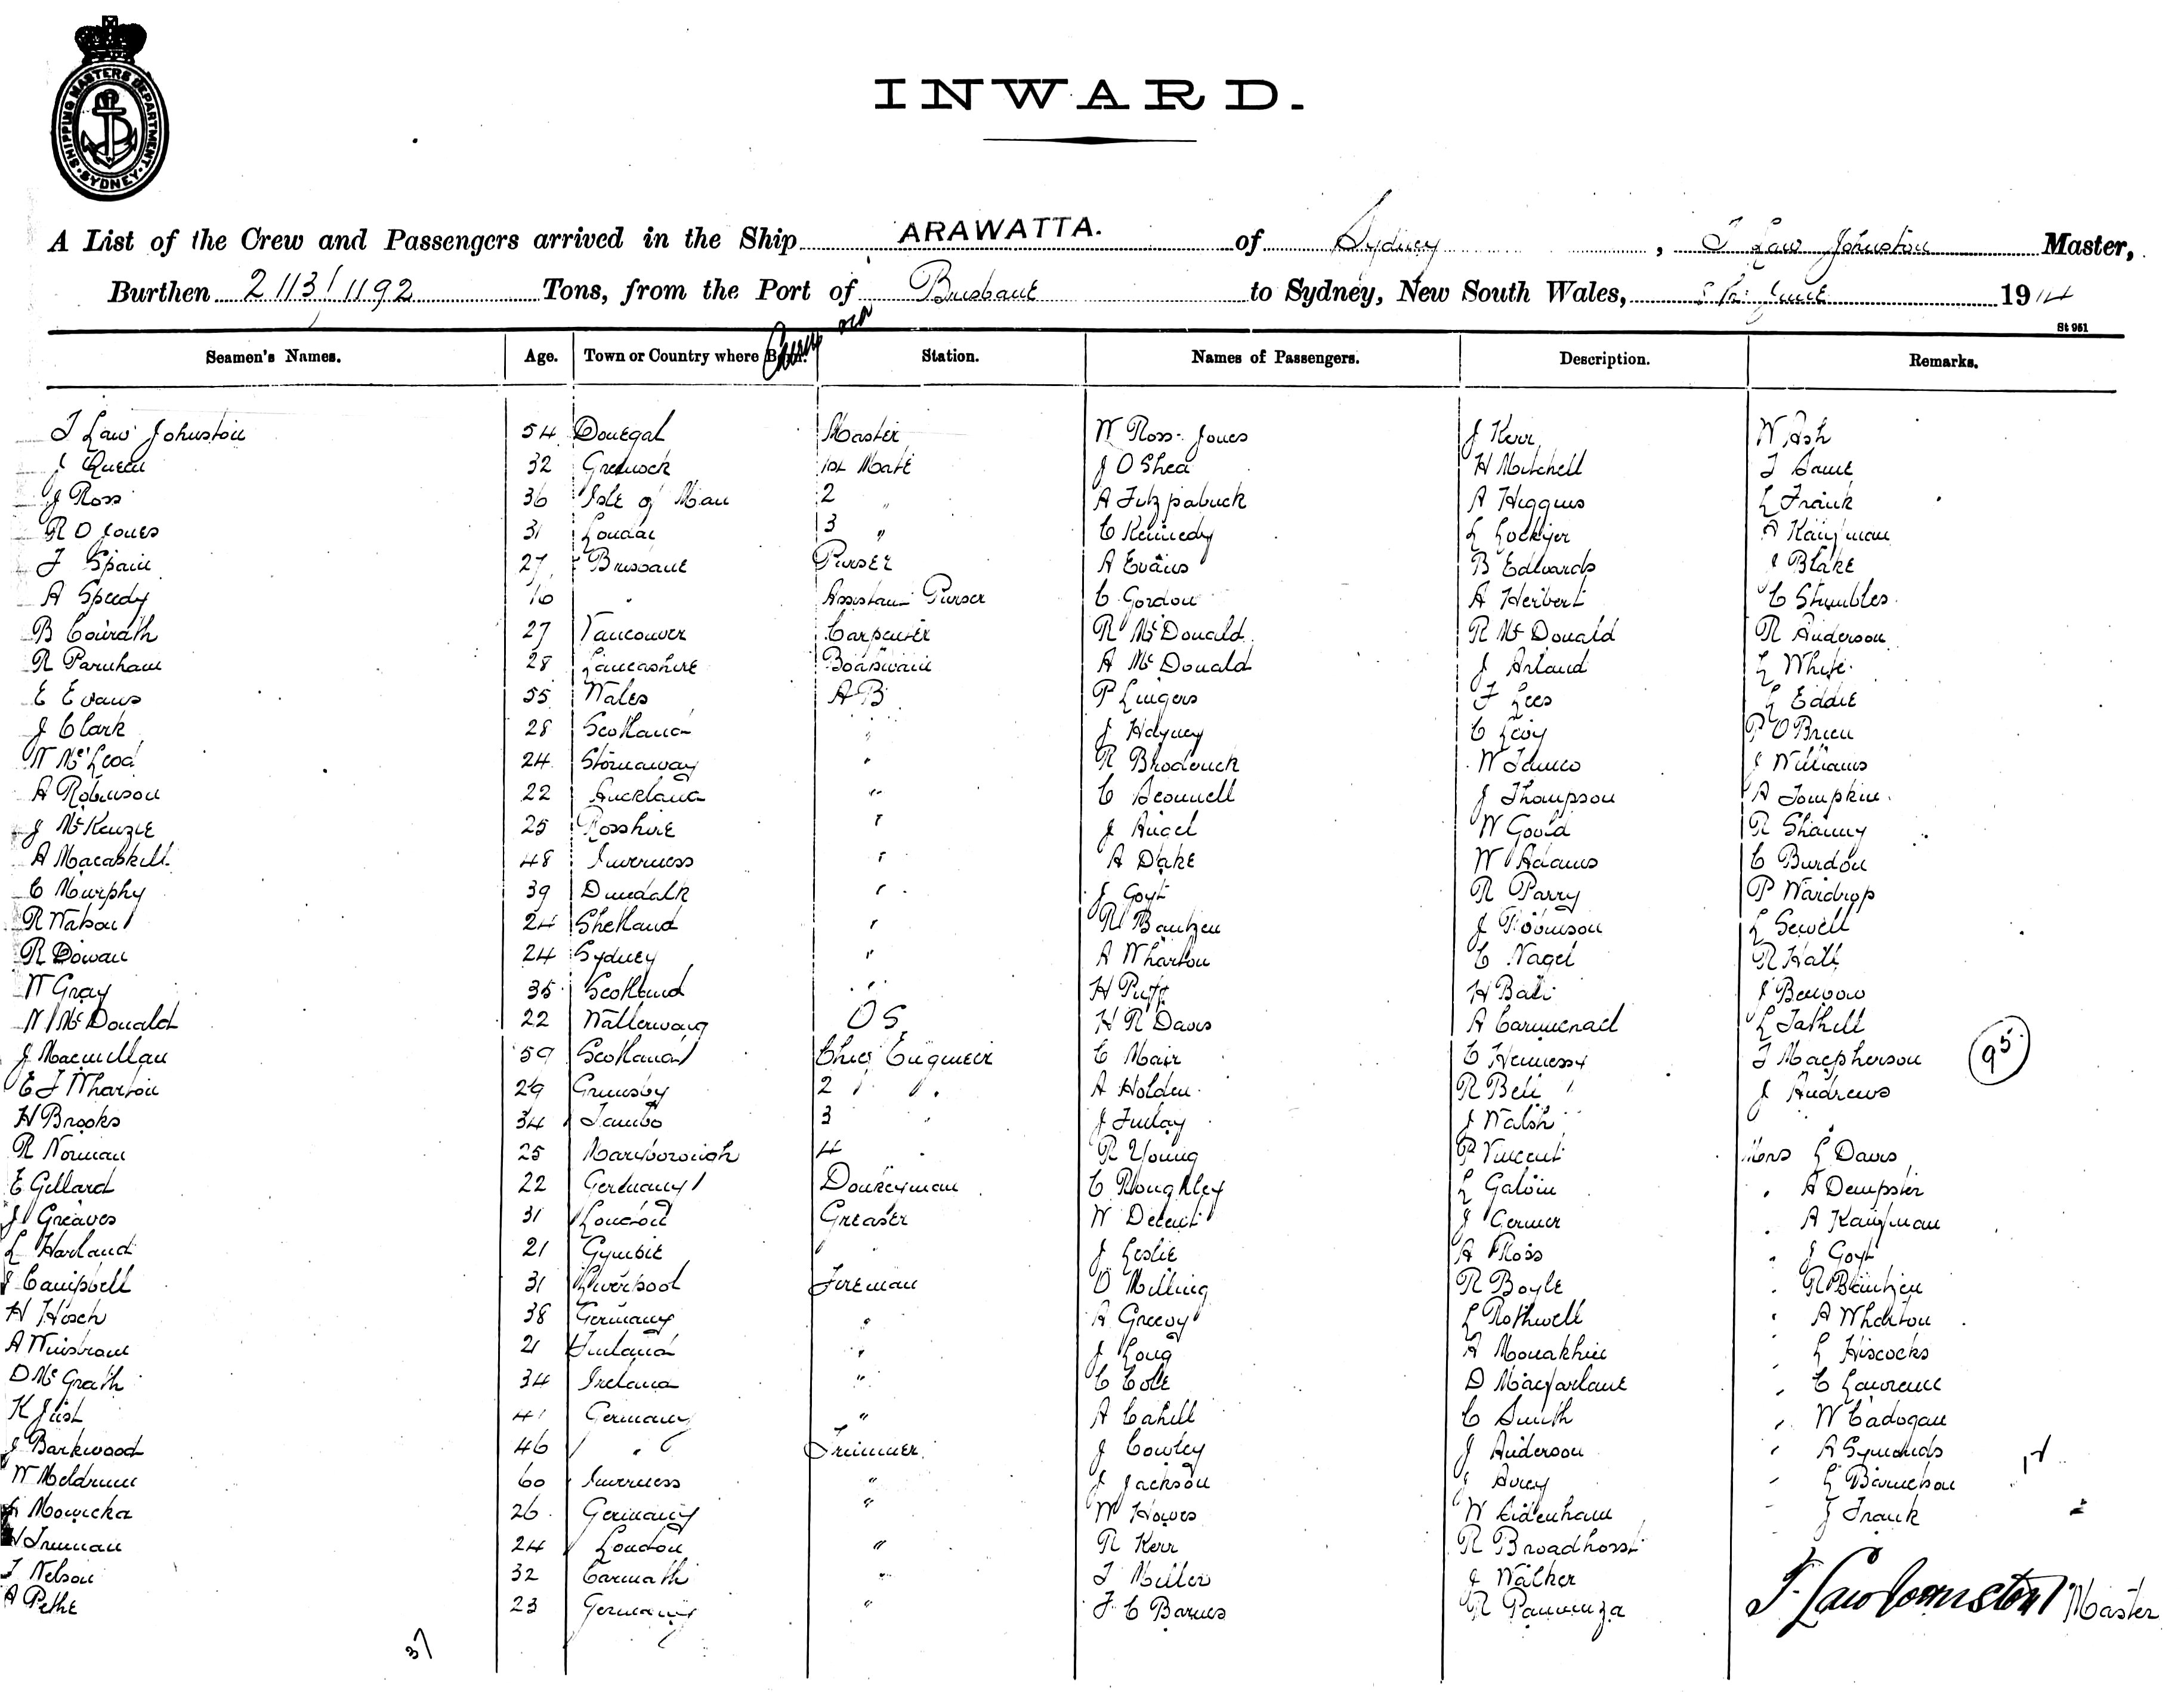 SHIPPING MASTERS DEPARTMENT. SYDNEY.
INWARD.
A List of the Crew and Passengers arrived in the Ship ARAWATTA. of Sydney, T Law Johnston Master,
Burthen 2113/1192 Tons, from the Port of Brisbane to Sydney, New South Wales, June 1914
St 951
Seamen's Names. Age. Town or Country where Born. Station. Names of Passengers. Description. Remarks.
T Law Johnston 54 Donegal Master W Ross-Jones J Kerr W Ash
J Queen 32 Greenock 1st Mate J O Shea H Mitchell T
J Ross 36 Isle of Man 2 " A Fitzpatrick A Higgins L Frank
R O Jones 31 London 3 " C Kennedy L Lockyer A Kaufman
T Spain 27 Brisbane Purser A Evans B Edwards J Blake
A Speedy 16 " Assistant Purser C Gordon A Herbert C Stumbles
B Conrath 27 Vancouver Carpenter R McDonald R McDonald R Anderson
R Parnham 28 Lancashire Boatswain A McDonald J Arland L White
E Evans 55 Wales AB P Lingers F Lees L Eddie
J Clark 28 Scotland " J C Levy P O'Brien
W McLeod 24 Stornaway " R Broderick W J Williams
A Robinson 22 Auckland " C J Thompson A Tompkin
J McKenzie 25 Rosshire " J Angel W Gould R Shanny
A Macaskill 48 Inverness " A Dake W Adams C Burdon
C Murphy 39 Dundalk " J Goyt R Parry P Wardrop
R Watson 24 Shetland " R Bantzen J Robinson L Sewell
R Dowan 24 Sydney " A Wharton C Nagel R Hall
W Gray 35 Scotland " H H Ball J
N McDonald 22 Wallerwang OS H R Davis A Carmichael L Tathill
J Macmillan 59 Scotland Chief Engineer C Mair C Hennessy T Macpherson 95
E J Wharton 29 Grimsby 2 " A Holden R Bell J Andrews
H Brooks 34 Jambo 3 " J Finlay J Walsh
R Norman 25 Maryborough 4 " R Young P Vincent L Davis
E Gillard 22 Germany Donkeyman C Roughley L Galvin " A Dempster
J Greaves 31 London Greaser W J Germer " A Kaufman
L Harland 21 Gympie " J Leslie A Ross " J Goyt
J Campbell 31 Liverpool Fireman O Milling R Boyle " R Bantzen
H Hosch 38 Germany " A Greevy L Rothwell " A Wharton
A Winstrom 21 Finland " J Long A Monakhin " L Hiscocks
D McGrath 34 Ireland " C Cole D Macfarlane " C Lawrence
K Just 41 Germany " A Cahill C Smith " W Cadogan
J Barkwood 46 " Trimmer J Cowley J Anderson " A Symonds
W Meldrum 60 Inverness " J Jackson J Avey " L
Mowicka 26 Germany " W Howes W Eidenham " J Frank
24 London " R Kerr R Broadhosst
T Nelson 32 " T Miller J Walker
A Pethe 23 Germany " F C Barnes R
T. Law Johnston Master
37